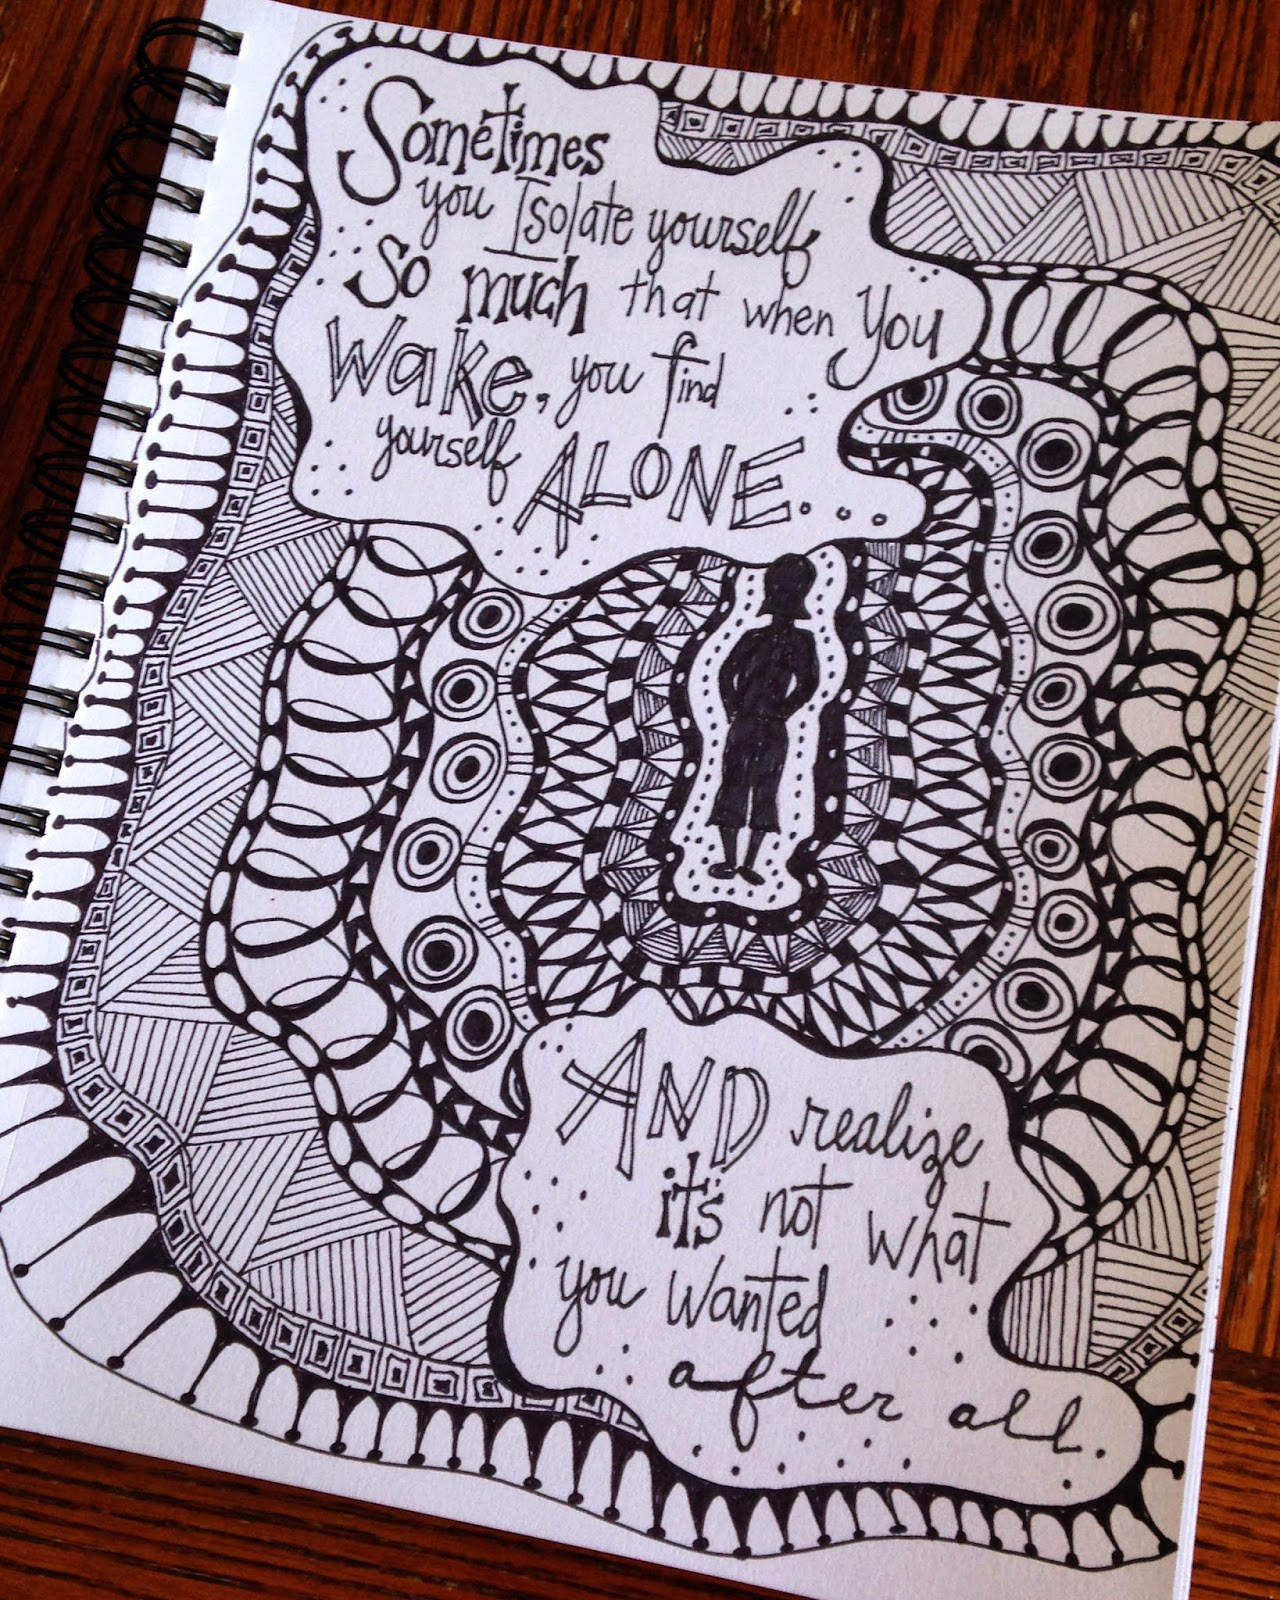 Sometimes
you Isolate yourself
So much that when You
Wake, you find
yourself ALONE...
AND realize
it's not what
you wanted
after all.